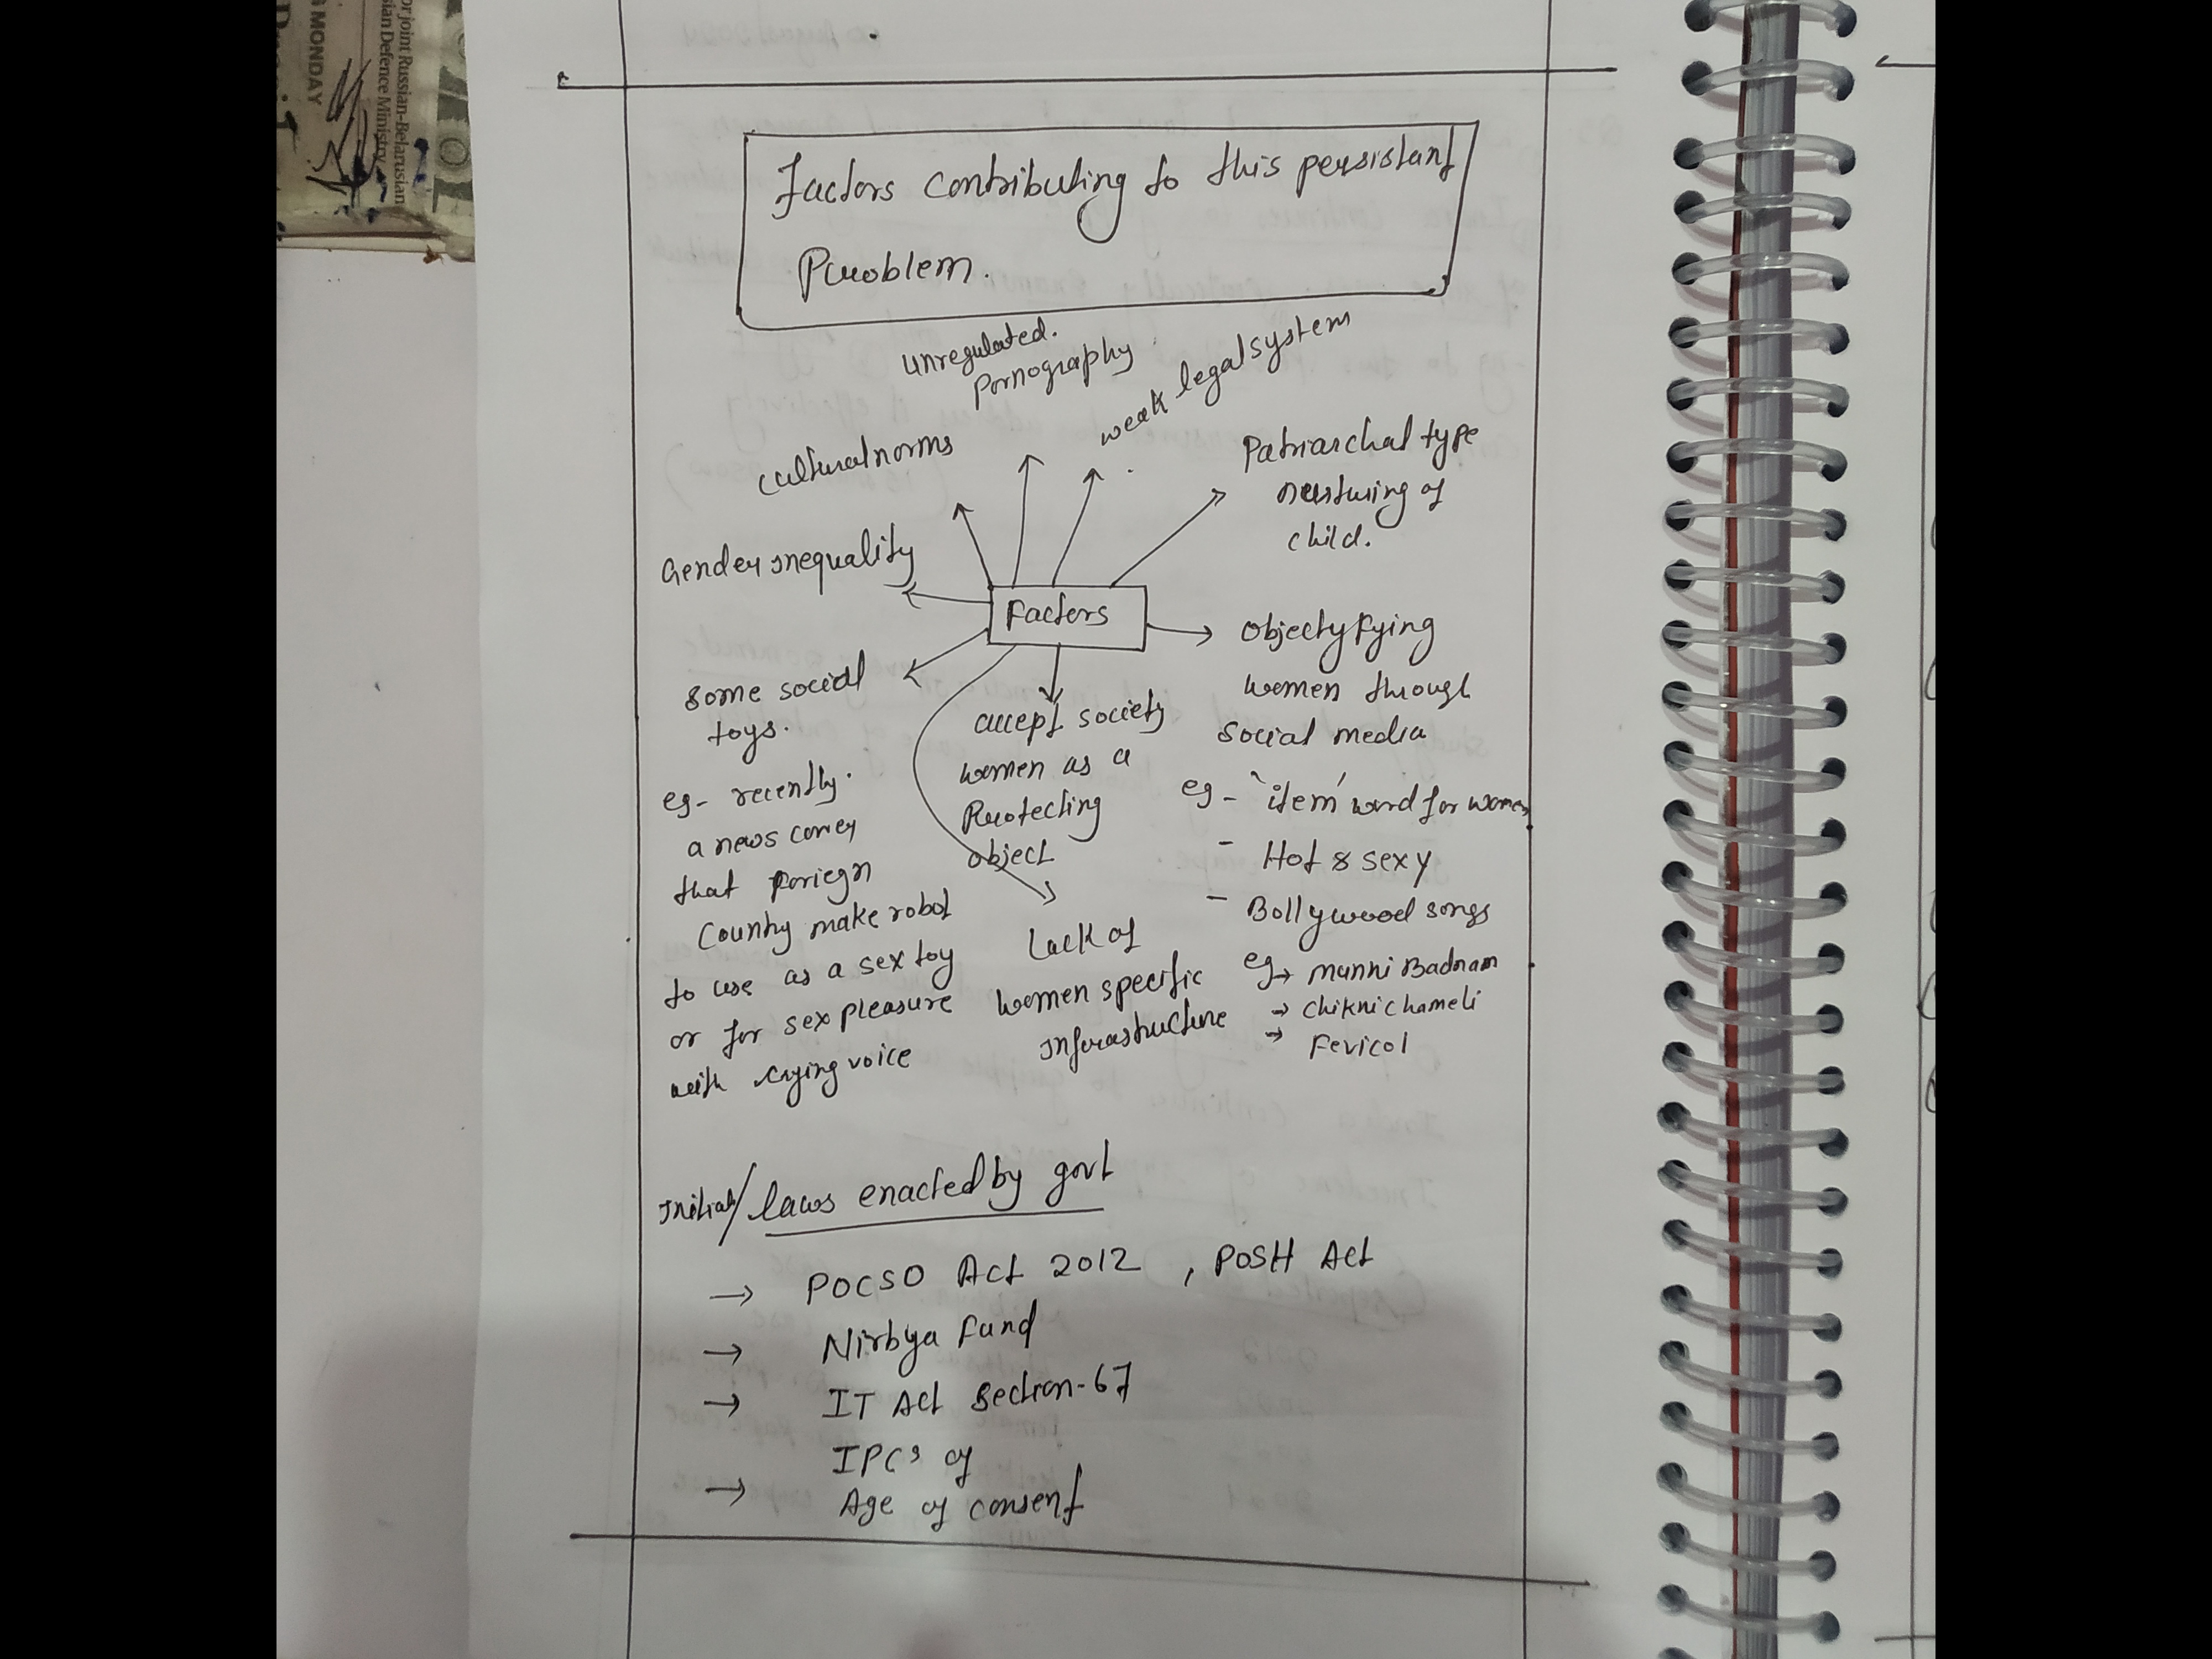 or joint Russian-Belarusian
sian Defence Ministry
MONDAY
Factors contributing to this persistant
Problem.
unregulated.
Pornography
weak legal system
cultural norms
Patriarchal type
nurturing of
child.
Gender inequality
Factors
Objectyfying
women through
Social media
eg - 'item' word for women
- Hot & sexy
- Bollywood songs
eg → munni Badnam
→ Chikni chameli
→ Fevicol
some social
toys.
eg- recently.
a news comes
that foriegn
Country make robot
to use as a sex toy
or for sex pleasure
with crying voice
accept society
women as a
Protecting
object
Lack of
women specific
Infrastructure
/ laws enacted by govt
→ POCSO Act 2012 , POSH Act
→ Nirbya Fund
→ IT Act Section-67
IPC's of
→ Age of consent